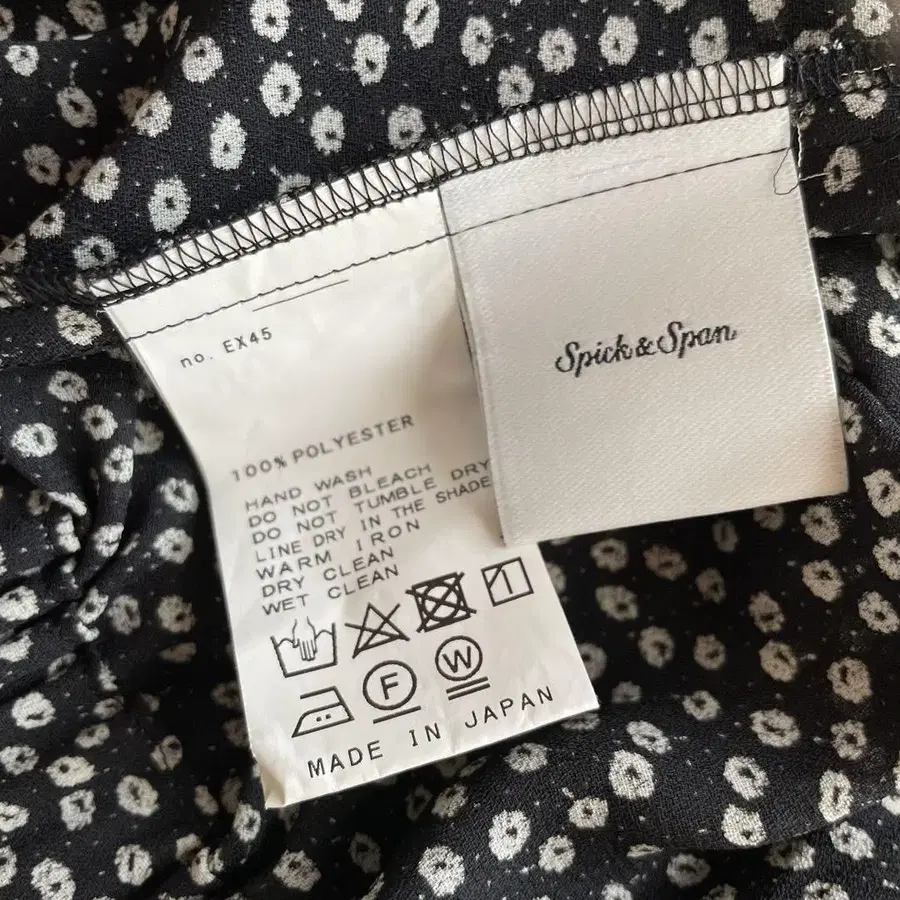 no. EX45
100% POLYESTER
HAND WASH
DO NOT BLEACH
DO NOT TUMBLE DRY
LINE DRY IN THE SHADE
WARM IRON
DRY CLEAN
WET CLEAN
F
W
MADE IN JAPAN
Spick & Span